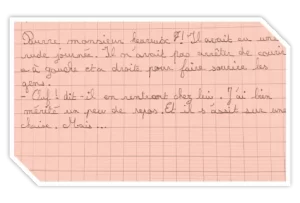 Pauvre monsieur ! Il avait eu une
rude journée. Il n'avait pas arrêter de courir
a gauche et a droite pour faire sourire les
gens.
- Ouf ! dit-il en rentrant chez lui. J'ai bien
mérité un peu de repos. Et il s'assit sur une
chaise. Mais...